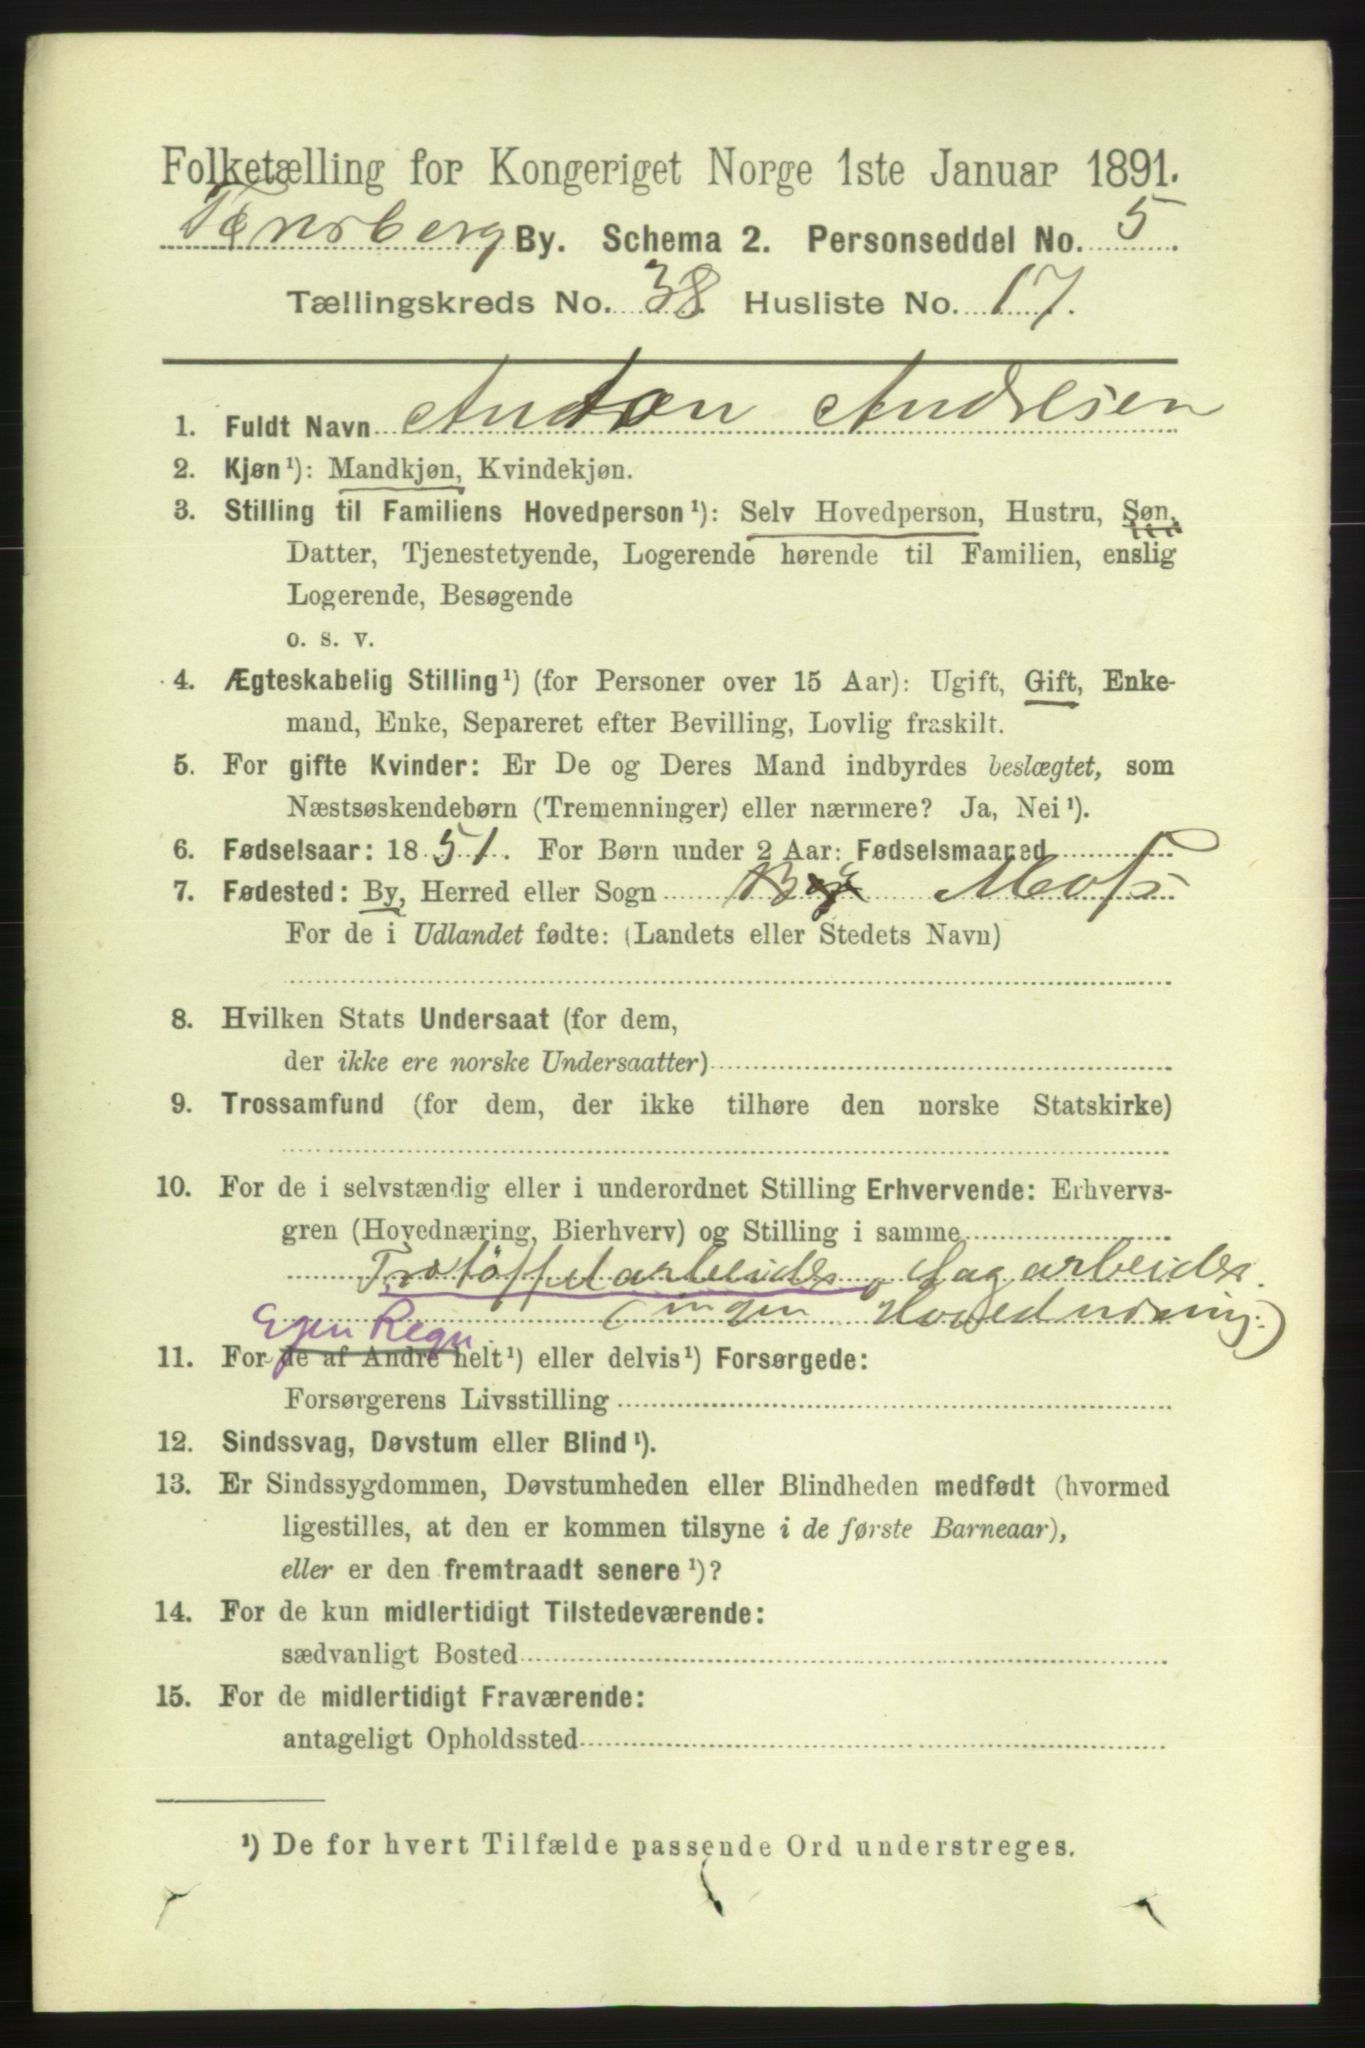 Folketælling for Kongeriget Norge 1ste Januar 1891.
Tønsberg By. Schema 2. Personseddel No. 5
Tællingskreds No. 38 Husliste No. 17.
1. Fuldt Navn Anton Andresen
2. Kjøn¹): Mandkjøn, Kvindekjøn.
3. Stilling til Familiens Hovedperson¹): Selv Hovedperson, Hustru, Søn,
Datter, Tjenestetyende, Logerende hørende til Familien, enslig
Logerende, Besøgende
o. s. v.
4. Ægteskabelig Stilling¹) (for Personer over 15 Aar): Ugift, Gift, Enke-
mand, Enke, Separeret efter Bevilling, Lovlig fraskilt.
5. For gifte Kvinder: Er De og Deres Mand indbyrdes beslægtet, som
Næstsøskendebørn (Tremenninger) eller nærmere? Ja, Nei¹).
6. Fødselsaar: 1851. For Børn under 2 Aar: Fødselsmaaned
7. Fødested: By, Herred eller Sogn Moss
For de i Udlandet fødte: (Landets eller Stedets Navn)
8. Hvilken Stats Undersaat (for dem,
der ikke ere norske Undersaatter)
9. Trossamfund (for dem, der ikke tilhøre den norske Statskirke)
10. For de i selvstændig eller i underordnet Stilling Erhvervende: Erhvervs-
gren (Hovednæring, Bierhverv) og Stilling i samme
Trætøffelarbeider, Sagarbeider
(ingen Hovednæring.)
Egen Regn.
11. For de af Andre helt¹) eller delvis¹) Forsørgede:
Forsørgerens Livsstilling
12. Sindssvag, Døvstum eller Blind¹).
13. Er Sindssygdommen, Døvstumheden eller Blindheden medfødt (hvormed
ligestilles, at den er kommen tilsyne i de første Barneaar),
eller er den fremtraadt senere¹)?
14. For de kun midlertidigt Tilstedeværende:
sædvanligt Bosted
15. For de midlertidigt Fraværende:
antageligt Opholdssted
¹) De for hvert Tilfælde passende Ord understreges.